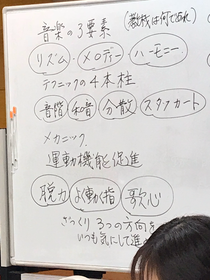 音楽の3要素 (教材は何であれ)
リズム・メロディー・ハーモニー
テクニックの4本柱
音階 和音 分散 スタッカート
メカニック
運動機能促進
脱力 よく動く指 歌心
ざっくり 3つの方向を
いつも気にして進